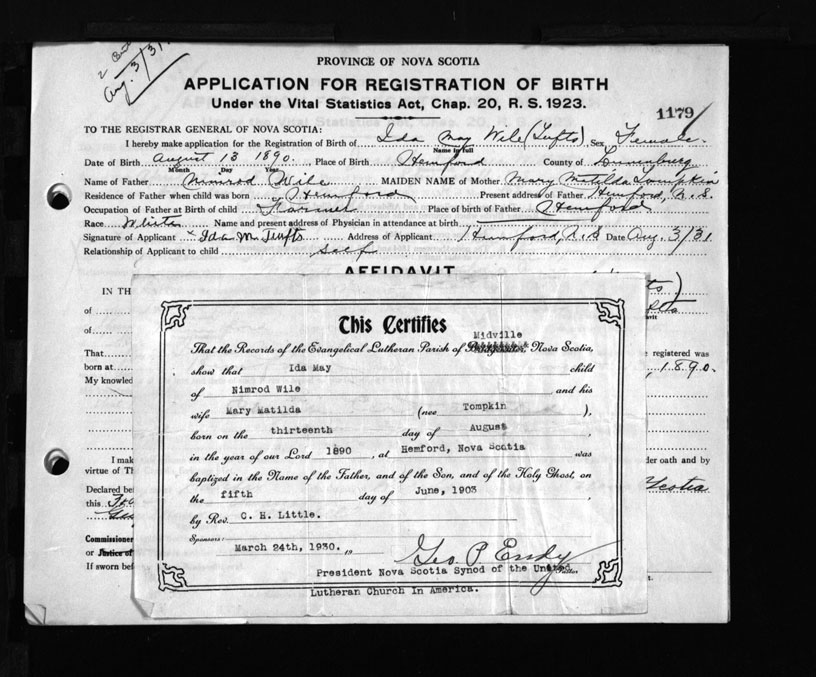 2 Birth
Aug. 3/31.
PROVINCE OF NOVA SCOTIA
APPLICATION FOR REGISTRATION OF BIRTH
Under the Vital Statistics Act, Chap. 20, R. S. 1923.
1179
TO THE REGISTRAR GENERAL OF NOVA SCOTIA:
I hereby make application for the Registration of Birth of Ida May Wile (Tufts) Sex Female.
Name in full
Date of Birth August 13 1890. Place of Birth Hemford County of Lunenburg
Month Day Year
Name of Father Nimrod Wile MAIDEN NAME of Mother Mary Matilda Tompkin
Residence of Father when child was born Hemford Present address of Father Hemford, N.S.
Occupation of Father at Birth of child Farmer Place of birth of Father Hemford
Race White Name and present address of Physician in attendance at birth
Signature of Applicant x Ida M. Tufts Address of Applicant Hemford, N.S Date Aug. 3/31
Relationship of Applicant to child self
AFFIDAVIT
IN TH
of
of
That registered was
born at , 1890.
My knowled
I mak der oath and by
virtue of Th
Declared be Scotia
this
Commissioner
or Justice of
If sworn bef
This Certifies
Midville
That the Records of the Evangelical Lutheran Parish of Bridgewater, Nova Scotia,
show that Ida May child
of Nimrod Wile and his
wife Mary Matilda (nee Tompkin ),
born on the thirteenth day of August ,
in the year of our Lord 1890 , at Hemford, Nova Scotia was
baptized in the Name of the Father, and of the Son, and of the Holy Ghost, on
the fifth day of June, 1903 ,
by Rev. C. H. Little.
Sponsors:
March 24th, 1930. 19 Geo. P. Endy
Pastor.
President Nova Scotia Synod of the United
Lutheran Church In America.